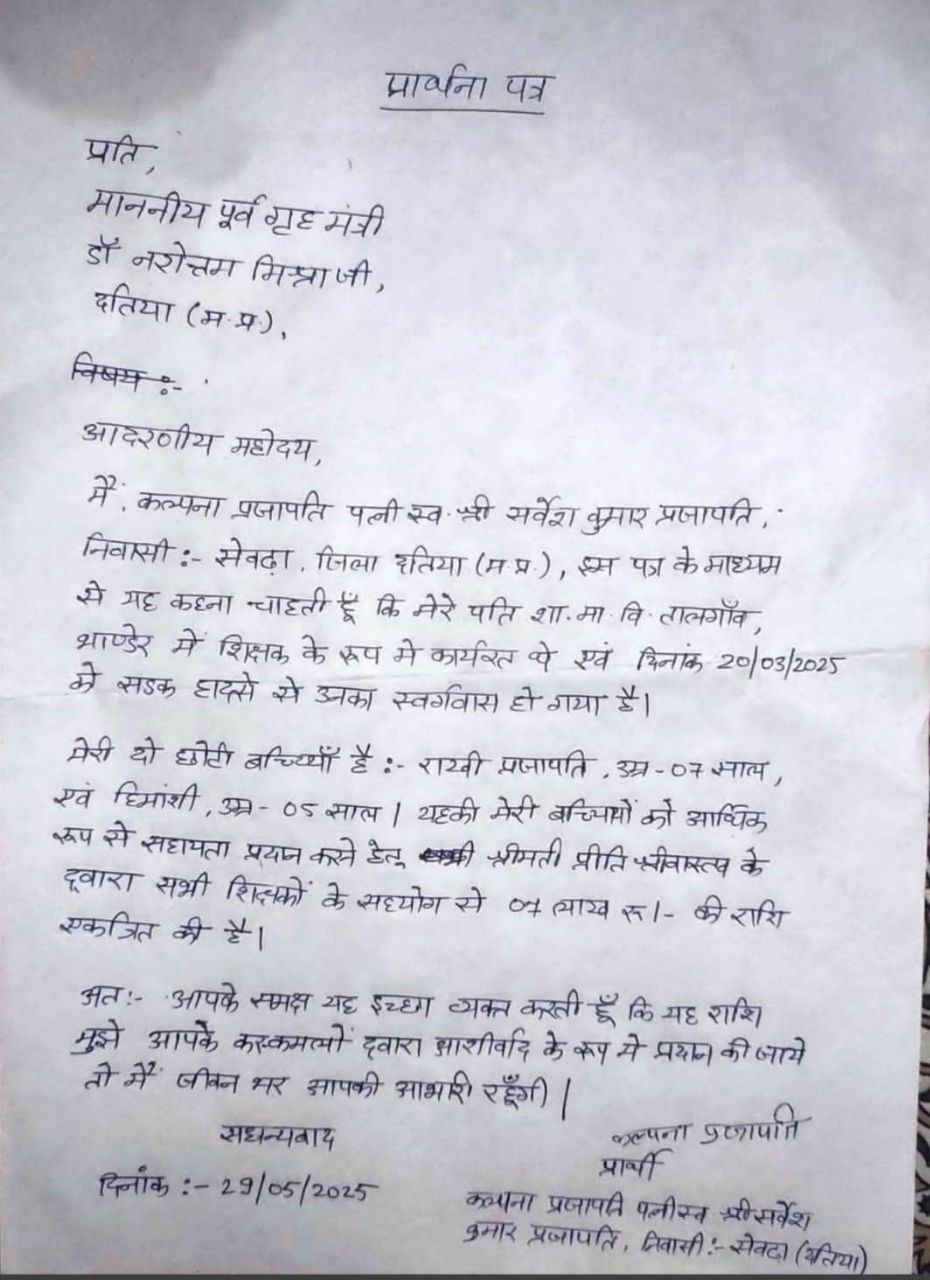 प्रार्थना पत्र
प्रति,
माननीय पूर्व गृह मंत्री
डॉ नरोत्तम मिश्रा जी,
दतिया (म.प्र.),
विषय :-
आदरणीय महोदय,
मैं, कल्पना प्रजापति पत्नी स्व. श्री सर्वेश कुमार प्रजापति,
निवासी :- सेवढ़ा, जिला दतिया (म.प्र.), इस पत्र के माध्यम
से यह कहना चाहती हूँ कि मेरे पति शा. मा. वि. तालगाँव,
भाण्डेर में शिक्षक के रूप मे कार्यरत थे एवं दिनांक 20/03/2025
को सडक हादसे से उनका स्वर्गवास हो गया है।
मेरी दो छोटी बच्चियाँ है :- राखी प्रजापति, उम्र - 07 साल,
एवं हिमांशी, उम्र - 05 साल। यहकी मेरी बच्चियों को आर्थिक
रूप से सहायता प्रदान करने हेतू श्रीमती प्रीति श्रीवास्तव के
द्वारा सभी शिक्षकों के सहयोग से 07 लाख रू।- की राशि
एकत्रित की है।
अत:- आपके समक्ष यह इच्छा व्यक्त करती हूँ कि यह राशि
मुझे आपके करकमलों द्वारा आशीर्वाद के रूप मे प्रदान की जाये
तो मैं जीवन भर आपकी आभारी रहूँगी।
सधन्यवाद
कल्पना प्रजापति
प्रार्थी
दिनांक :- 29/05/2025
कल्पना प्रजापति पत्नी स्व श्री सर्वेश
कुमार प्रजापति, निवासी :- सेवढा (दतिया)